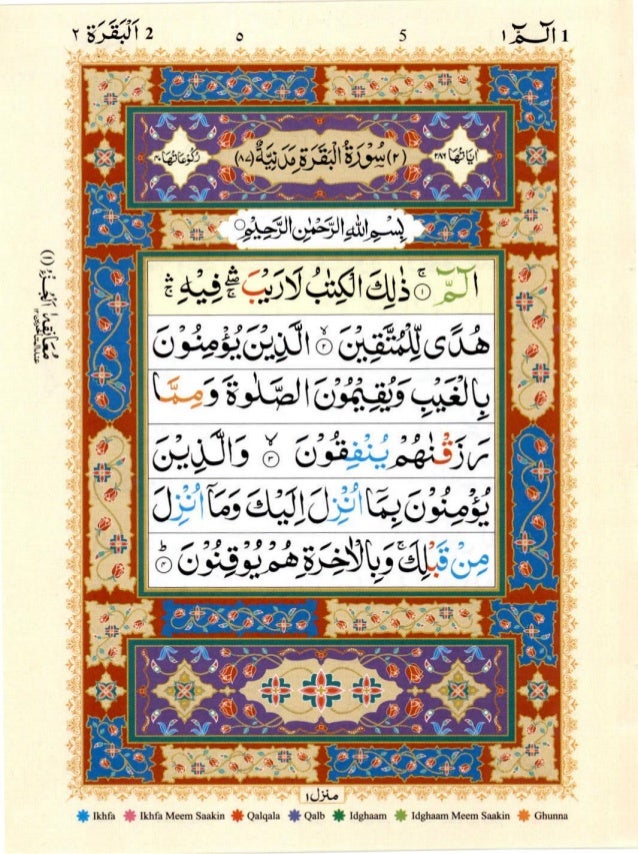 ٢ اَلْبَقَرَة 2 ٥ 5 ١ الٓمّٓ 1
اٰيَاتُهَا ٢٨٦ (٢) سُوْرَةُ الْبَقَرَةِ مَدَنِيَّةٌ (٨٧) رُكُوْعَاتُهَا ٤٠
بِسْمِ اللّٰهِ الرَّحْمٰنِ الرَّحِيْمِ
الٓمّٓ ۚ ١ ذٰلِكَ الْكِتٰبُ لَا رَيْبَ ۛۖۚ فِيْهِ ۛۚ
هُدًى لِّلْمُتَّقِيْنَ ۙ ٢ الَّذِيْنَ يُؤْمِنُوْنَ
بِالْغَيْبِ وَيُقِيْمُوْنَ الصَّلٰوةَ وَمِمَّا
رَزَقْنٰهُمْ يُنْفِقُوْنَ ۙ ٣ وَالَّذِيْنَ
يُؤْمِنُوْنَ بِمَآ اُنْزِلَ اِلَيْكَ وَمَآ اُنْزِلَ
مِنْ قَبْلِكَ ۚ وَبِالْاٰخِرَةِ هُمْ يُوْقِنُوْنَ ؕ ٤
منزل ١
Ikhfa Ikhfa Meem Saakin Qalqala Qalb Idghaam Idghaam Meem Saakin Ghunna